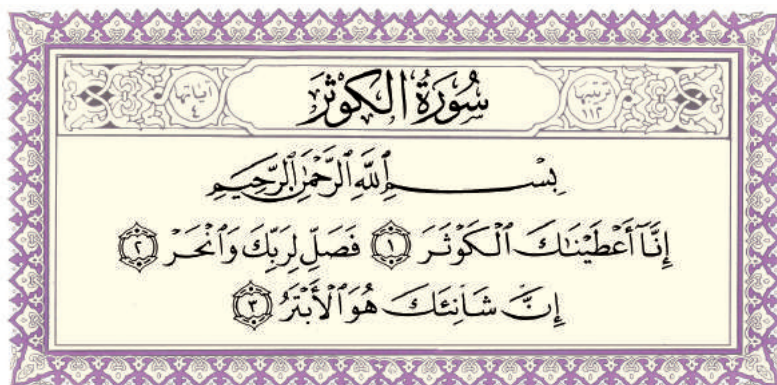 ترتيبها ١١٢
سُورَةُ الْكَوْثَرِ
آياتها ٤
بِسْمِ اللَّهِ الرَّحْمَٰنِ الرَّحِيمِ
إِنَّآ أَعْطَيْنَٰكَ ٱلْكَوْثَرَ ١ فَصَلِّ لِرَبِّكَ وَٱنْحَرْ ٢
إِنَّ شَانِئَكَ هُوَ ٱلْأَبْتَرُ ٣